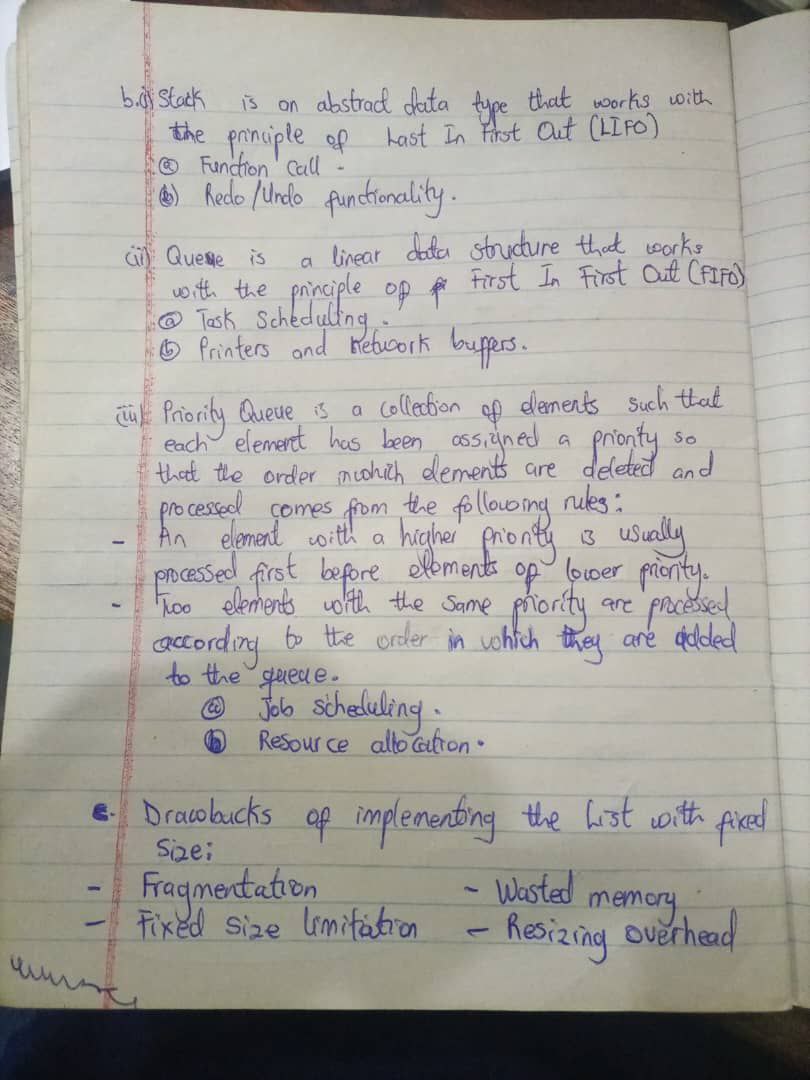 b.(i) Stack is an abstract data type that works with
the principle of Last In First Out (LIFO)
(a) Function Call.
(b) Redo/Undo functionality.
(ii) Queue is a linear data structure that works
with the principle of First In First Out (FIFO)
(a) Task Scheduling.
(b) Printers and network buffers.
(iii) Priority Queue is a collection of elements such that
each element has been assigned a priority so
that the order inwhich elements are deleted and
processed comes from the following rules:
- An element with a higher priority is usually
processed first before elements of lower priority.
- Two elements with the same priority are processed
according to the order in which they are added
to the queue.
(a) Job scheduling.
(b) Resource allocation.
c. Drawbacks of implementing the List with fixed
size:
- Fragmentation - Wasted memory
- Fixed size limitation - Resizing overhead